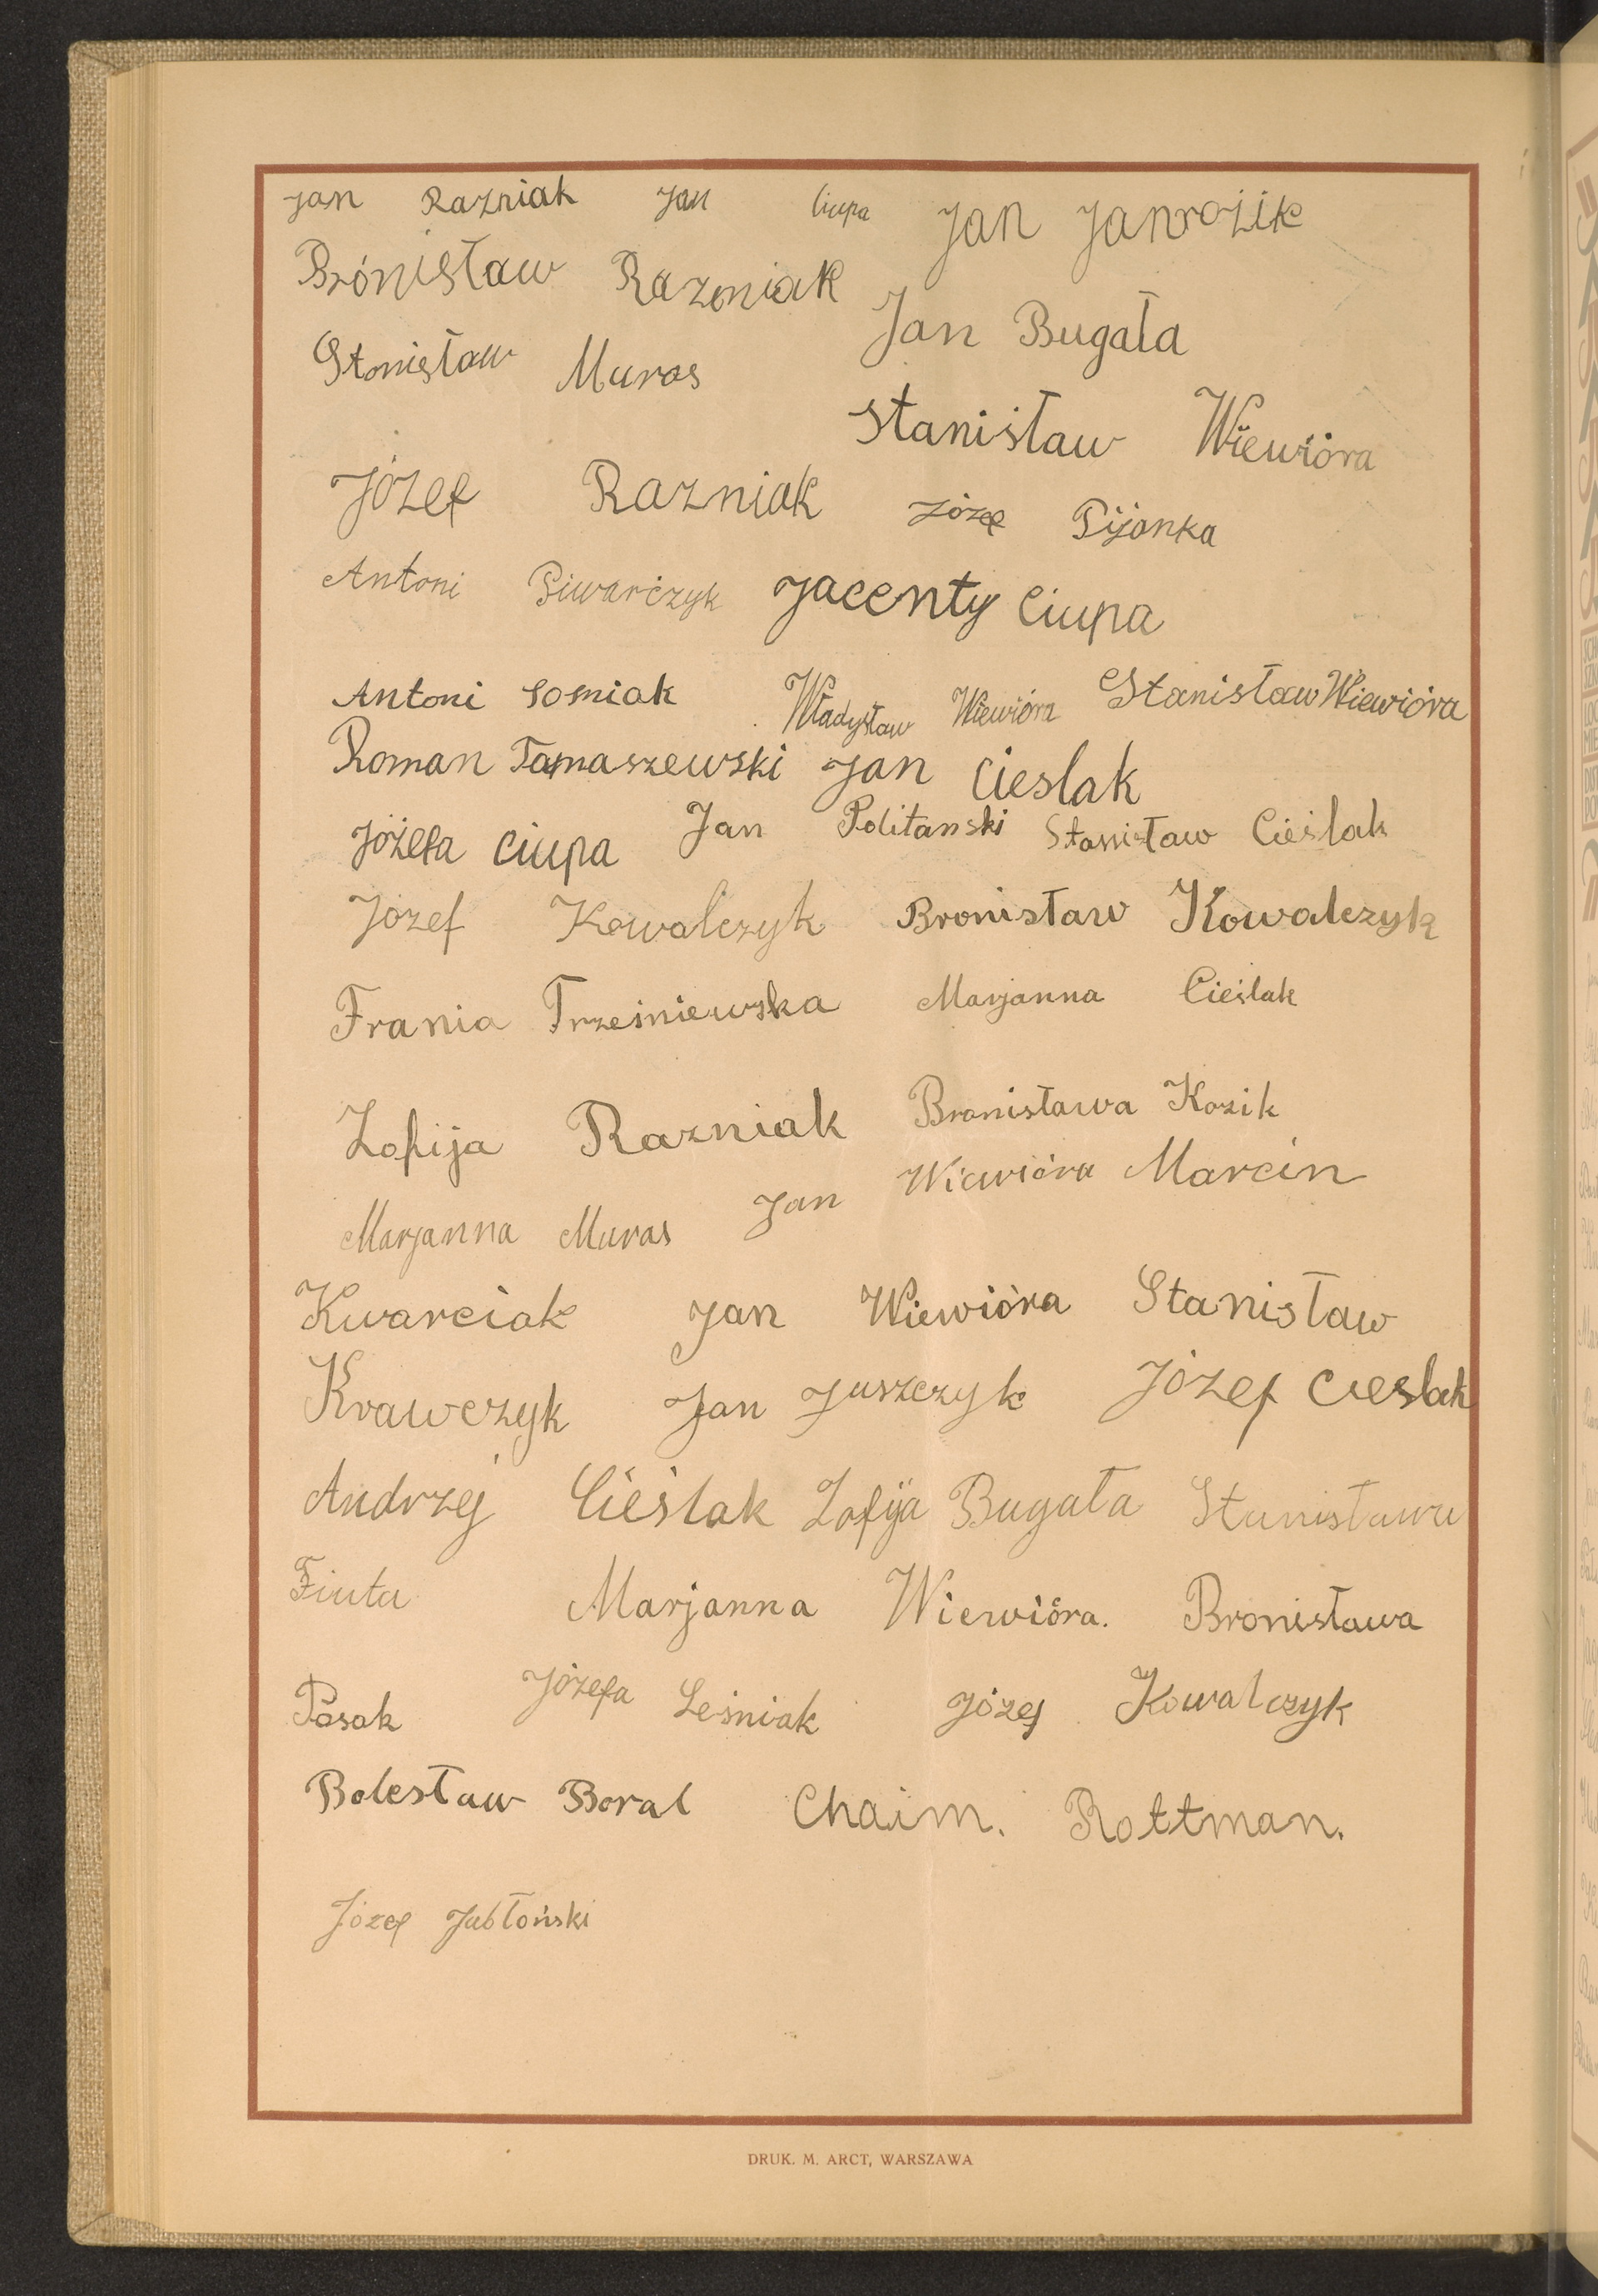 Jan Razniak Jan Ciupa Jan Janrozik
Brónisław Razoniak
Jan Bugała
Stonisław Muras
Stanisław Wiewióra
Józef Razniak Józef Pijanka
Antoni Siwarczyk Jacenty Ciupa
Antoni Sosniak Władysław Wiewióra Stanisław Wiewióra
Roman Tamaszewski Jan Cieslak
Józefa Ciupa Jan Politanski Stanisław Cieślak
Józef Kowalczyk Bronisław Kowalczyk
Frania Trześniewska Marjanna Cieślak
Zofija Razniak Bronisława Kozik
Marjanna Muras Jan Wiewióra Marcin
Kwarciak Jan Wiewióra Stanisław
Krawczyk Jan Juszczyk Józef Cieslak
Andrzej Cieślak Zofija Bugała Stanisława
Fiuta Marjanna Wiewióra. Bronisława
Pasak Józefa Leśniak Józef Kowalczyk
Bolesław Boral Chaim. Rottman.
Józef Jabłoński
DRUK. M. ARCT, WARSZAWA